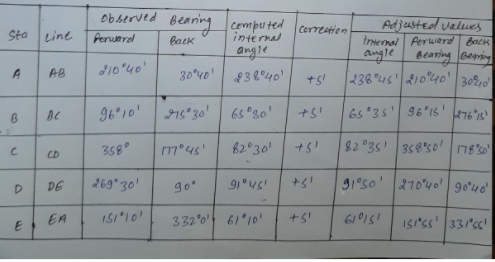 Sta Line Observed Bearing Computed internal angle Correction Adjusted Values
Forward Back Internal angle Forward Bearing Back Bearing
A AB 210°40' 30°40' 238°40' +5' 238°45' 210°40' 30°40'
B BC 96°10' 275°30' 65°30' +5' 65°35' 96°15' 276°15'
C CD 358° 177°45' 82°30' +5' 82°35' 358°50' 178°50'
D DE 269°30' 90° 91°45' +5' 91°50' 270°40' 90°40'
E EA 151°10' 332°0' 61°10' +5' 61°15' 151°55' 331°55'